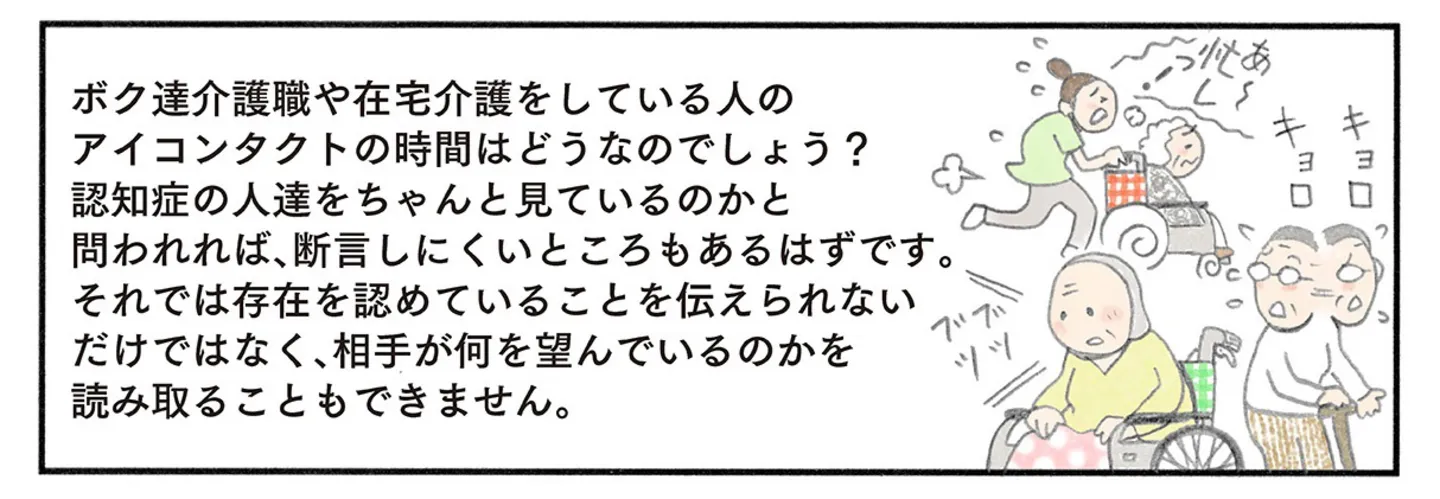 ボク達介護職や在宅介護をしている人の
アイコンタクトの時間はどうなのでしょう？
認知症の人達をちゃんと見ているのかと
問われれば、断言しにくいところもあるはずです。
それでは存在を認めていることを伝えられない
だけではなく、相手が何を望んでいるのかを
読み取ることもできません。
あ〜
忙し
っ！
キョロ
キョロ
ブツ
ブツ